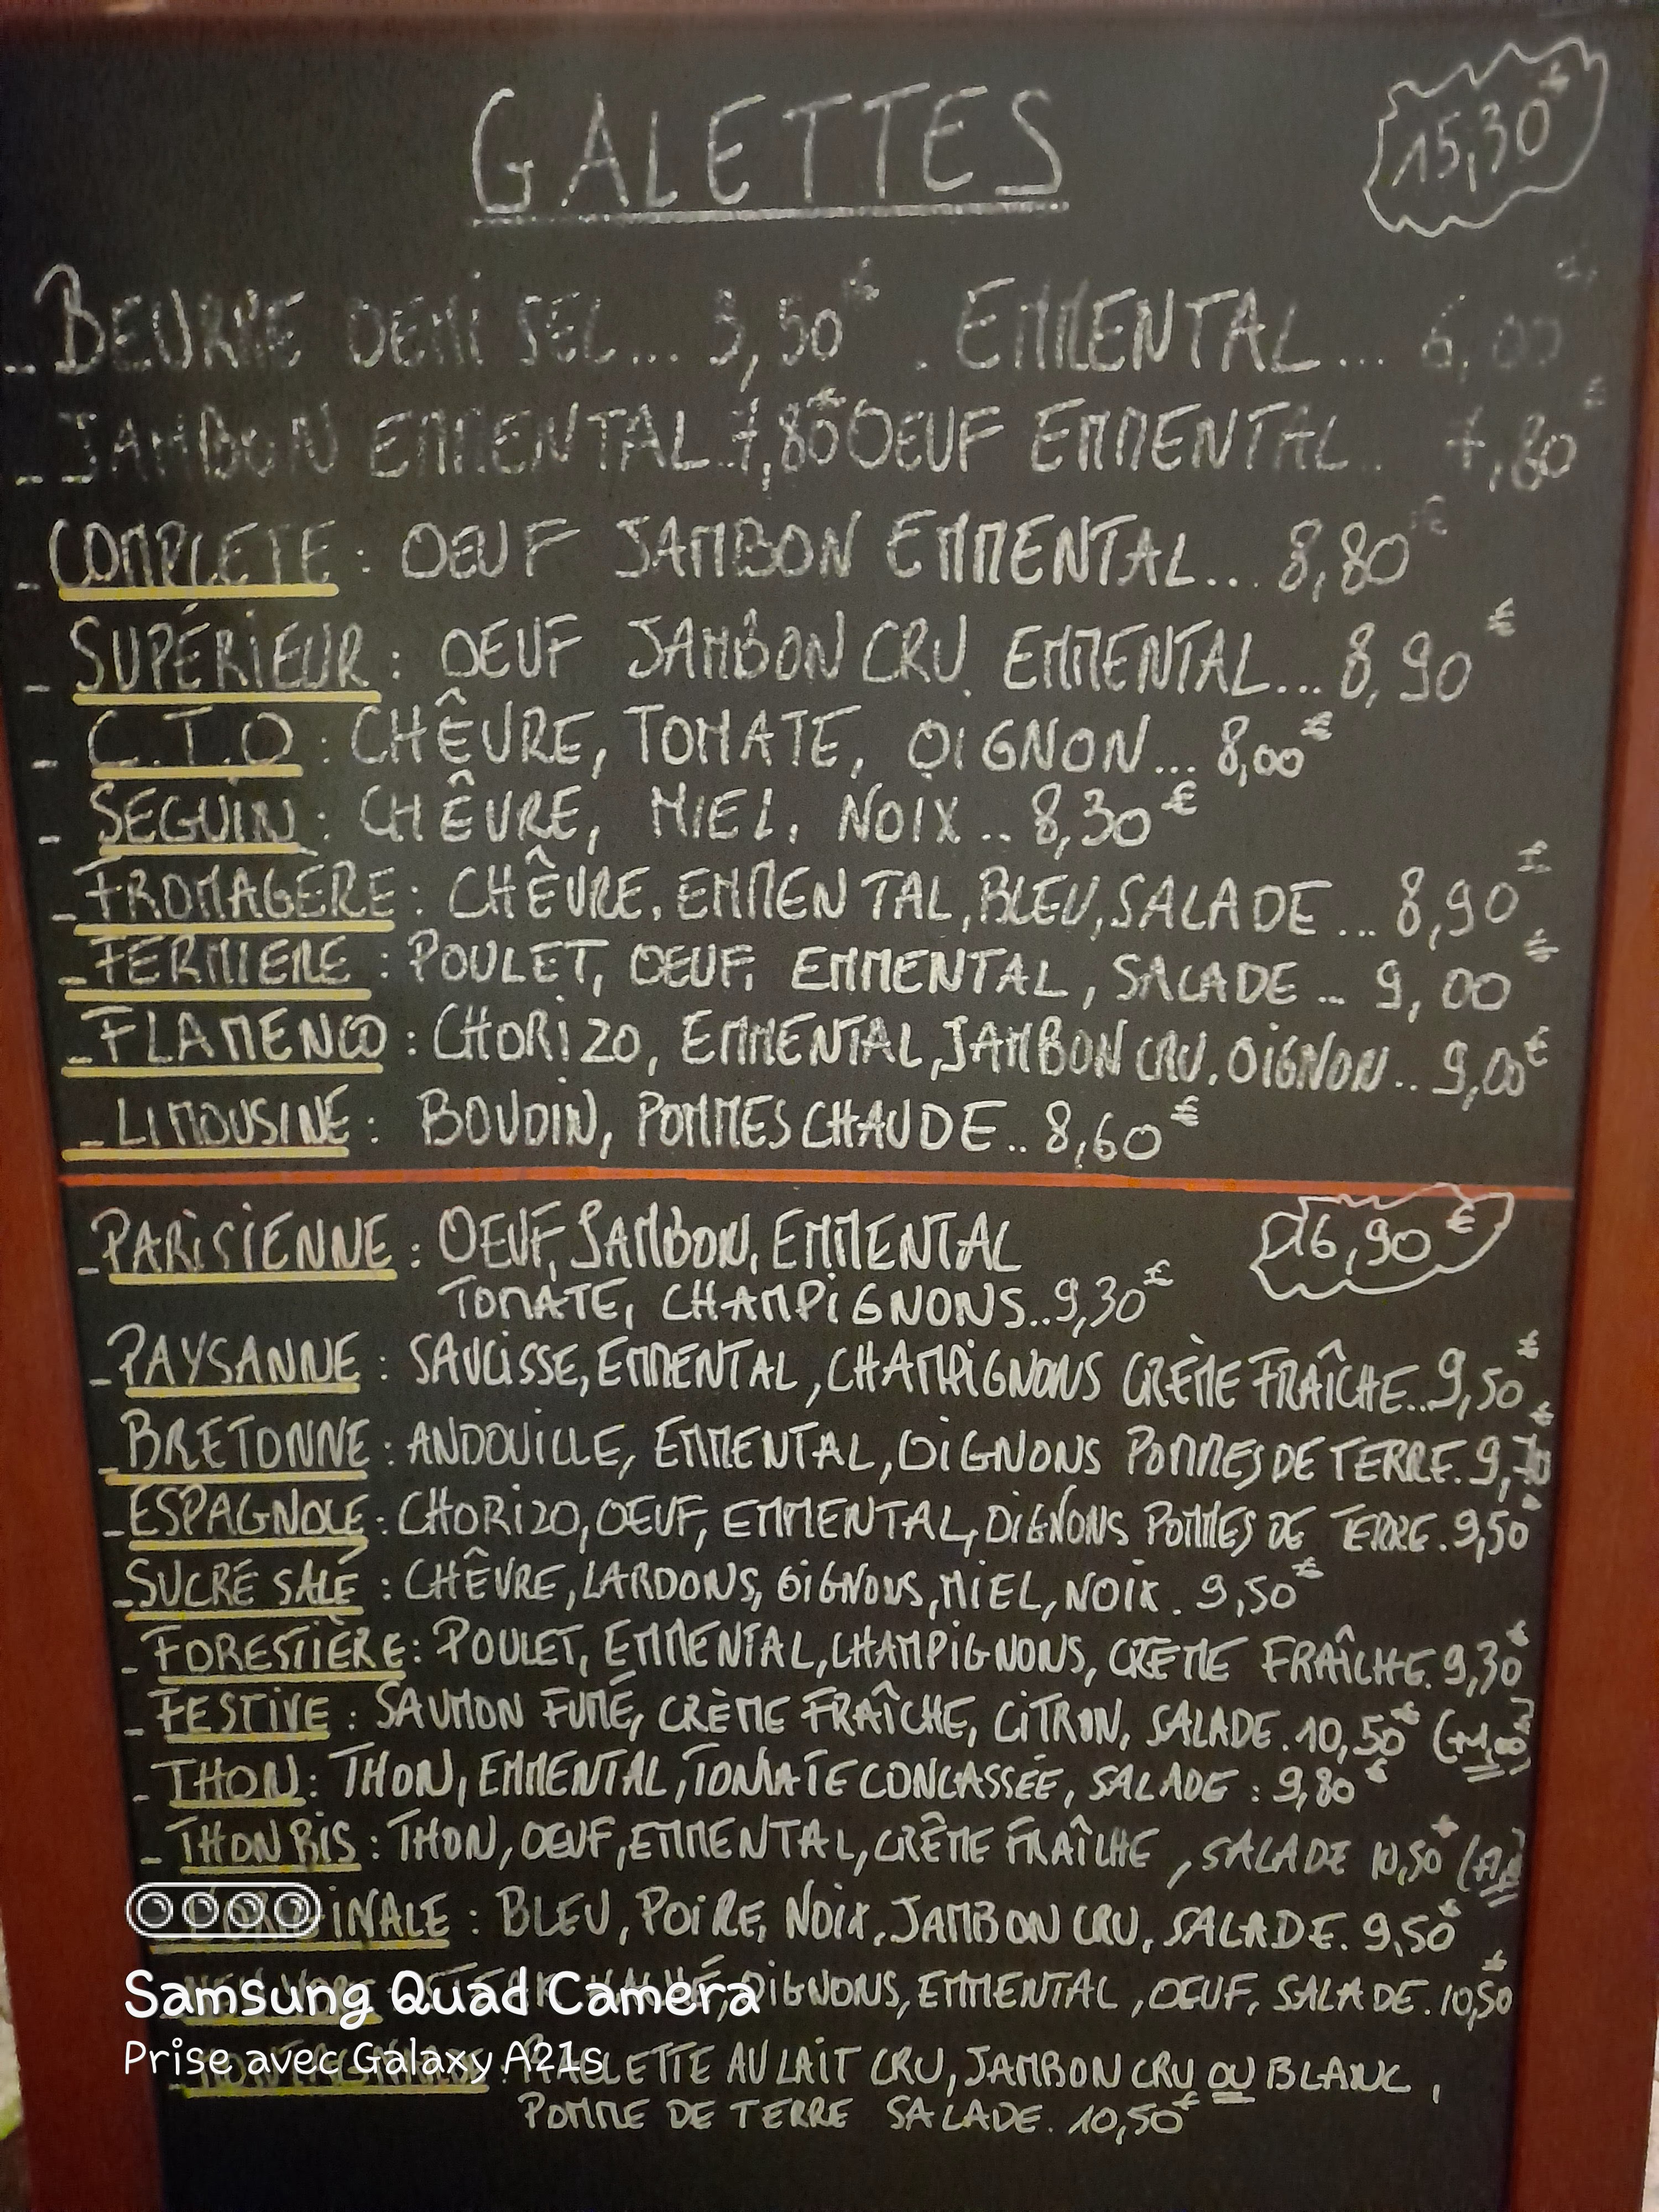 GALETTES
15,30€
- BEURRE DEMI SEL... 3,50€ . EMMENTAL... 6,00€
- JAMBON EMMENTAL..7,80€ OEUF EMMENTAL.. 7,80€
- COMPLETE : OEUF JAMBON EMMENTAL... 8,80€
- SUPÉRIEUR : OEUF JAMBON CRU EMMENTAL... 8,90€
- C.T.O : CHÊVRE, TOMATE, OIGNON... 8,00€
- SEGUIN : CHÊVRE, MIEL, NOIX.. 8,30€
- FROMAGERE : CHÊVRE, EMMENTAL, BLEU, SALADE ... 8,90€
- FERMIERE : POULET, OEUF, EMMENTAL, SALADE ... 9,00€
- FLAMENCO : CHORIZO, EMMENTAL, JAMBON CRU, OIGNON.. 9,00€
- LIMOUSINE : BOUDIN, POMMES CHAUDE.. 8,60€
16,90€
- PARISIENNE : OEUF, JAMBON, EMMENTAL
TOMATE, CHAMPIGNONS..9,30€
- PAYSANNE : SAUCISSE, EMMENTAL, CHAMPIGNONS CRÈME FRAÎCHE..9,50€
- BRETONNE : ANDOUILLE, EMMENTAL, OIGNONS POMMES DE TERRE. 9,70€
- ESPAGNOLE : CHORIZO, OEUF, EMMENTAL, OIGNONS POMMES DE TERRE. 9,50€
- SUCRE SALÉ : CHÊVRE, LARDONS, OIGNONS, MIEL, NOIX. 9,50€
- FORESTIÈRE : POULET, EMMENTAL, CHAMPIGNONS, CRÈME FRAÎCHE. 9,30€
- FESTIVE : SAUMON FUMÉ, CRÈME FRAÎCHE, CITRON, SALADE. 10,50€ (+1,00€)
- THON : THON, EMMENTAL, TOMATE CONCASSÉE, SALADE : 9,80€
- THON BIS : THON, OEUF, EMMENTAL, CRÊME FRAÎCHE, SALADE 10,50€
INALE : BLEU, POIRE, NOIX, JAMBON CRU, SALADE. 9,50€
OIGNONS, EMMENTAL, OEUF, SALADE. 10,50€
Samsung Quad Camera
Prise avec Galaxy A21s
RACLETTE AU LAIT CRU, JAMBON CRU OU BLANC,
POMME DE TERRE SALADE. 10,50€